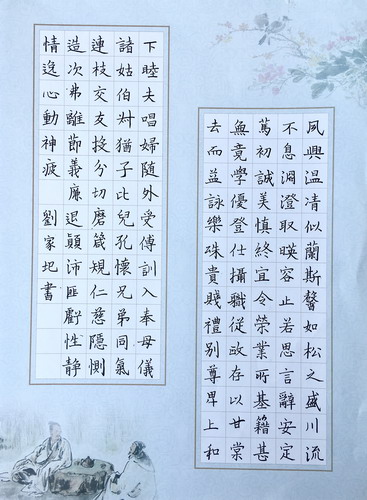 夙興溫凊似蘭斯馨如松之盛川流
不息淵澄取暎容止若思言辭安定
篤初誠美慎終宜令榮業所基籍甚
無竟學優登仕攝職從政存以甘棠
去而益詠樂殊貴賤禮別尊卑上和
下睦夫唱婦隨外受傅訓入奉母儀
諸姑伯叔猶子比兒孔懷兄弟同氣
連枝交友投分切磨箴規仁慈隱惻
造次弗離節義廉退顛沛匪虧性静
情逸心動神疲 劉家書